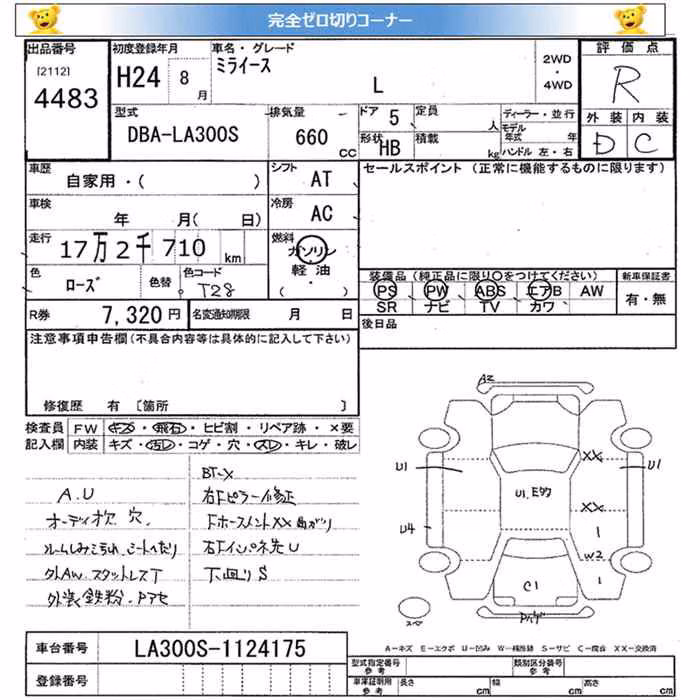 完全ゼロ切りコーナー
出品番号
[2112]
4483
初度登録年月
H24 8 月
車名・グレード
ミライース
L
2WD
・
4WD
評価点
R
外装 内装
D C
型式
DBA-LA300S
排気量
660 CC
ドア 5
定員 人
形状 HB
積載 kg
ディーラー・並行
モデル年式 年
ハンドル 左・右
車歴
自家用・( )
シフト AT
セールスポイント (正常に機能するものに限ります)
車検 年 月( 日)
冷房 AC
走行 17万2千710 km
燃料 ガソリン・軽油・( )
色 ローズ 色替
色コード T28
装備品(純正品に限り○をつけてください)
PS PW ABS エアB AW
SR ナビ TV カワ
新車保証書
有・無
R券 7,320円
名変通知期限 月 日
後日品
注意事項申告欄(不具合内容等は具体的に記入して下さい)
修復歴 有 〔箇所 〕
検査員記入欄
FW キズ・飛石・ヒビ割・リペア跡・×要
内装 キズ・汚レ・コゲ・穴・スレ・キレ・破レ
A.U
オーディオ欠 穴.
ルームしみ
外AW. スタットレスT
外装鉄粉.
BT-X
右Fピラー修正
XX 曲がり
右Fインパネ先U
下回りS
A2
XX
U1
U1
U1. Eクク
XX
U4
1
W2
C1
1
スペア
A-キズ E-エクボ U-凹み W-補修跡 S-サビ C-腐食 XX-交換済
車台番号 LA300S-1124175
登録番号
型式指定番号 参考
類別区分番号 参考
車庫証明用 参考
長さ cm
幅 cm
高さ cm